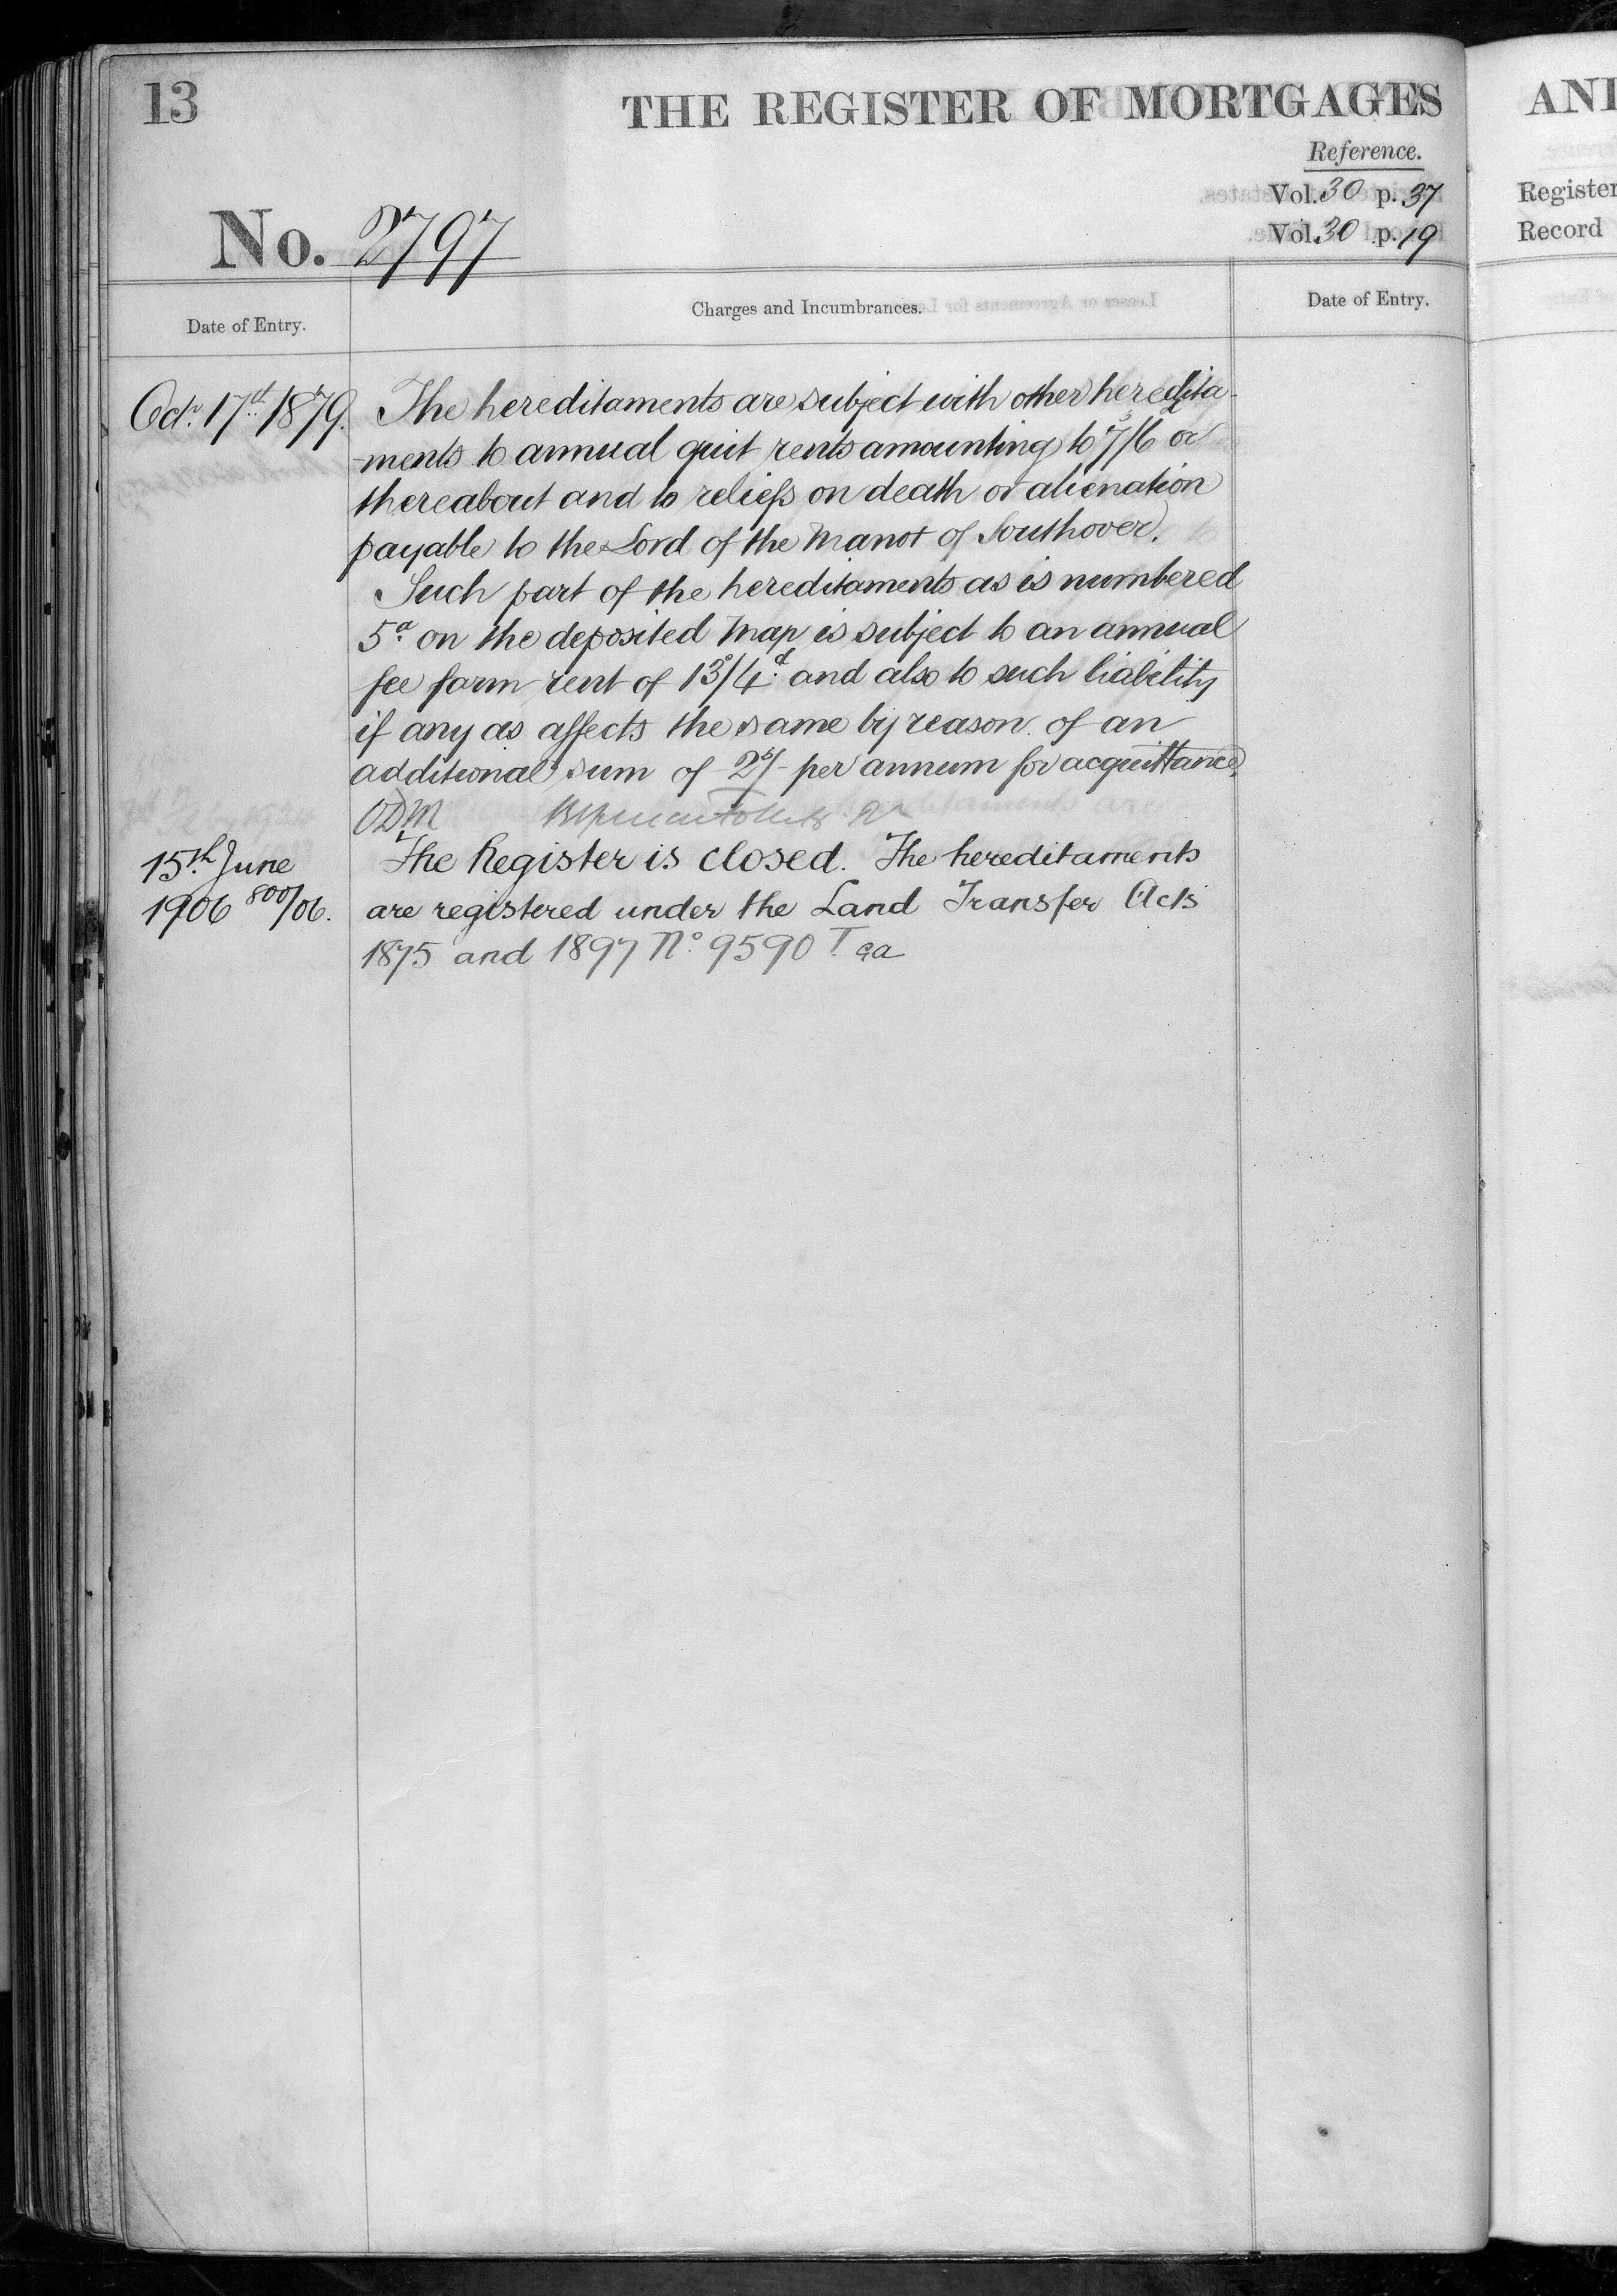 13
THE REGISTER OF MORTGAGES
Reference.
Vol. 30 p. 37
Vol. 30 p. 19
No. 2797
Date of Entry.
Charges and Incumbrances.
Date of Entry.
Octr. 17th 1879.
The hereditaments are subject with other heredita-
-ments to annual quit rents amounting to 7s/6 or
thereabout and to reliefs on death or alienation
payable to the Lord of the Manor of Southover.
Such part of the hereditaments as is numbered
5a on the deposited Map is subject to an annual
fee farm rent of 13s/4d and also to such liability
if any as affects the same by reason of an
additional sum of 2s/- per annum for acquittance.
ODM
15th June
1906 800/06.
The Register is closed. The hereditaments
are registered under the Land Transfer Acts
1875 and 1897 No. 9590
ANI
Register
Record